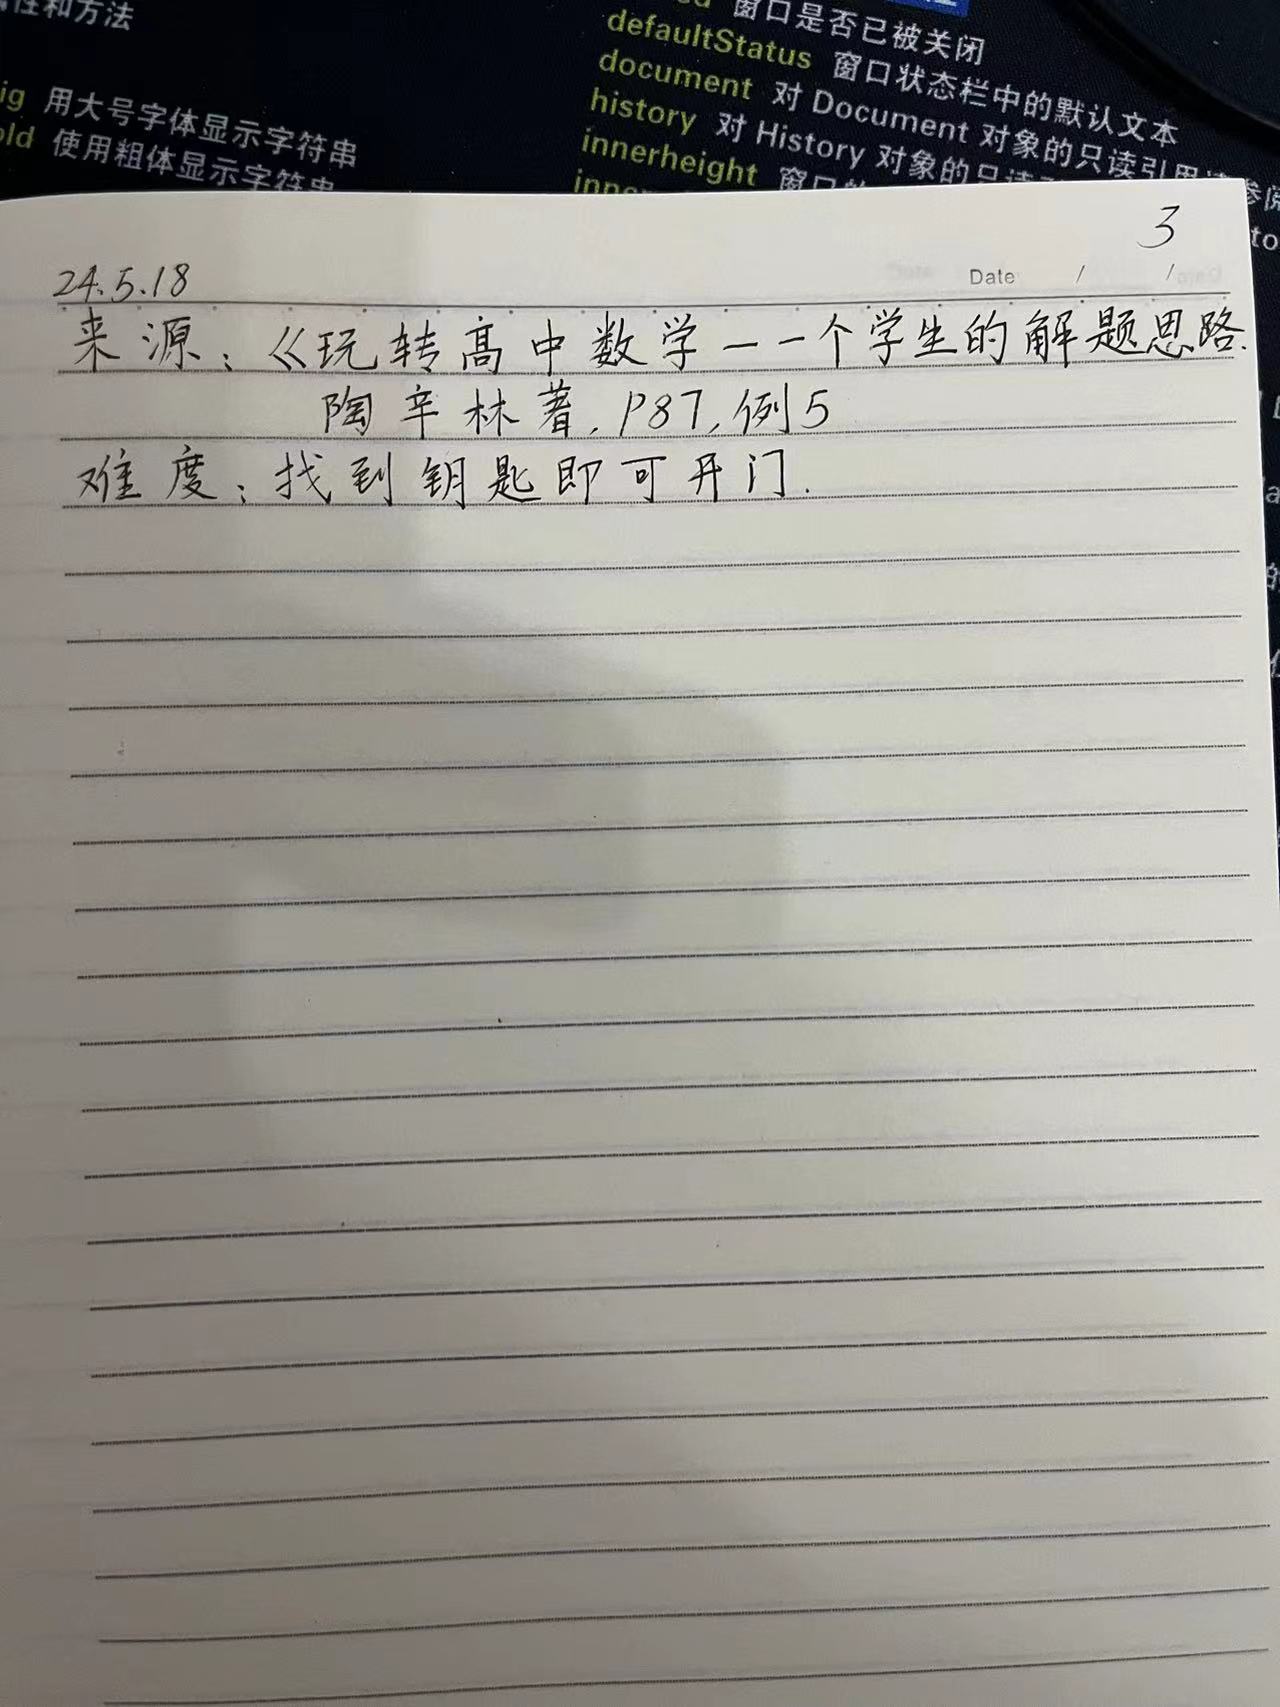 性和方法
ig 用大号字体显示字符串
old 使用粗体显示字符串
窗口是否已被关闭
defaultStatus 窗口状态栏中的默认文本
document 对 Document 对象的只读引用
history 对 History 对象的只读
innerheight 窗口的
inner
3
24.5.18
Date / /
来源:《玩转高中数学——个学生的解题思路.
陶辛林著, P87, 例5
难度:找到钥匙即可开门.